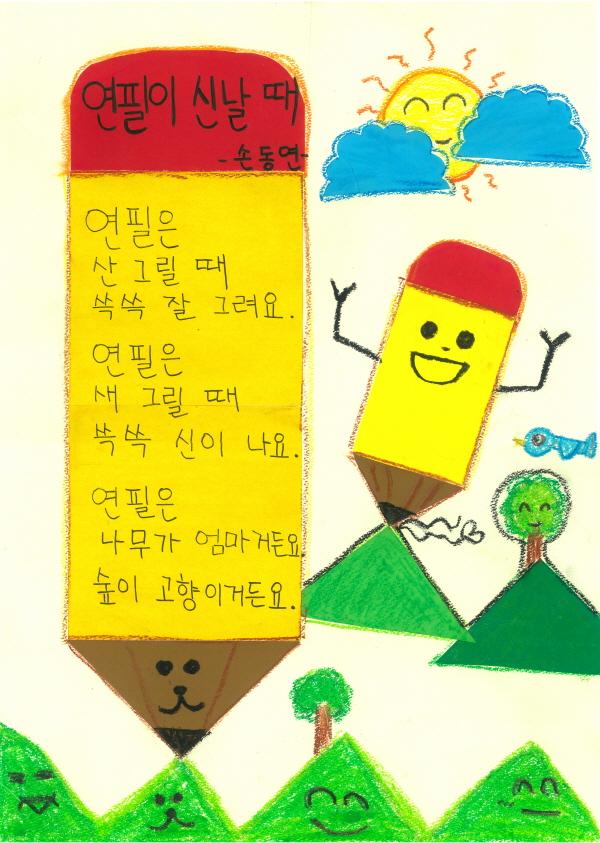 연필이 신날 때
- 손동연-
연필은
산 그릴 때
쓱쓱 잘 그려요.
연필은
새 그릴 때
쓱쓱 신이 나요.
연필은
나무가 엄마거든요.
숲이 고향이거든요.